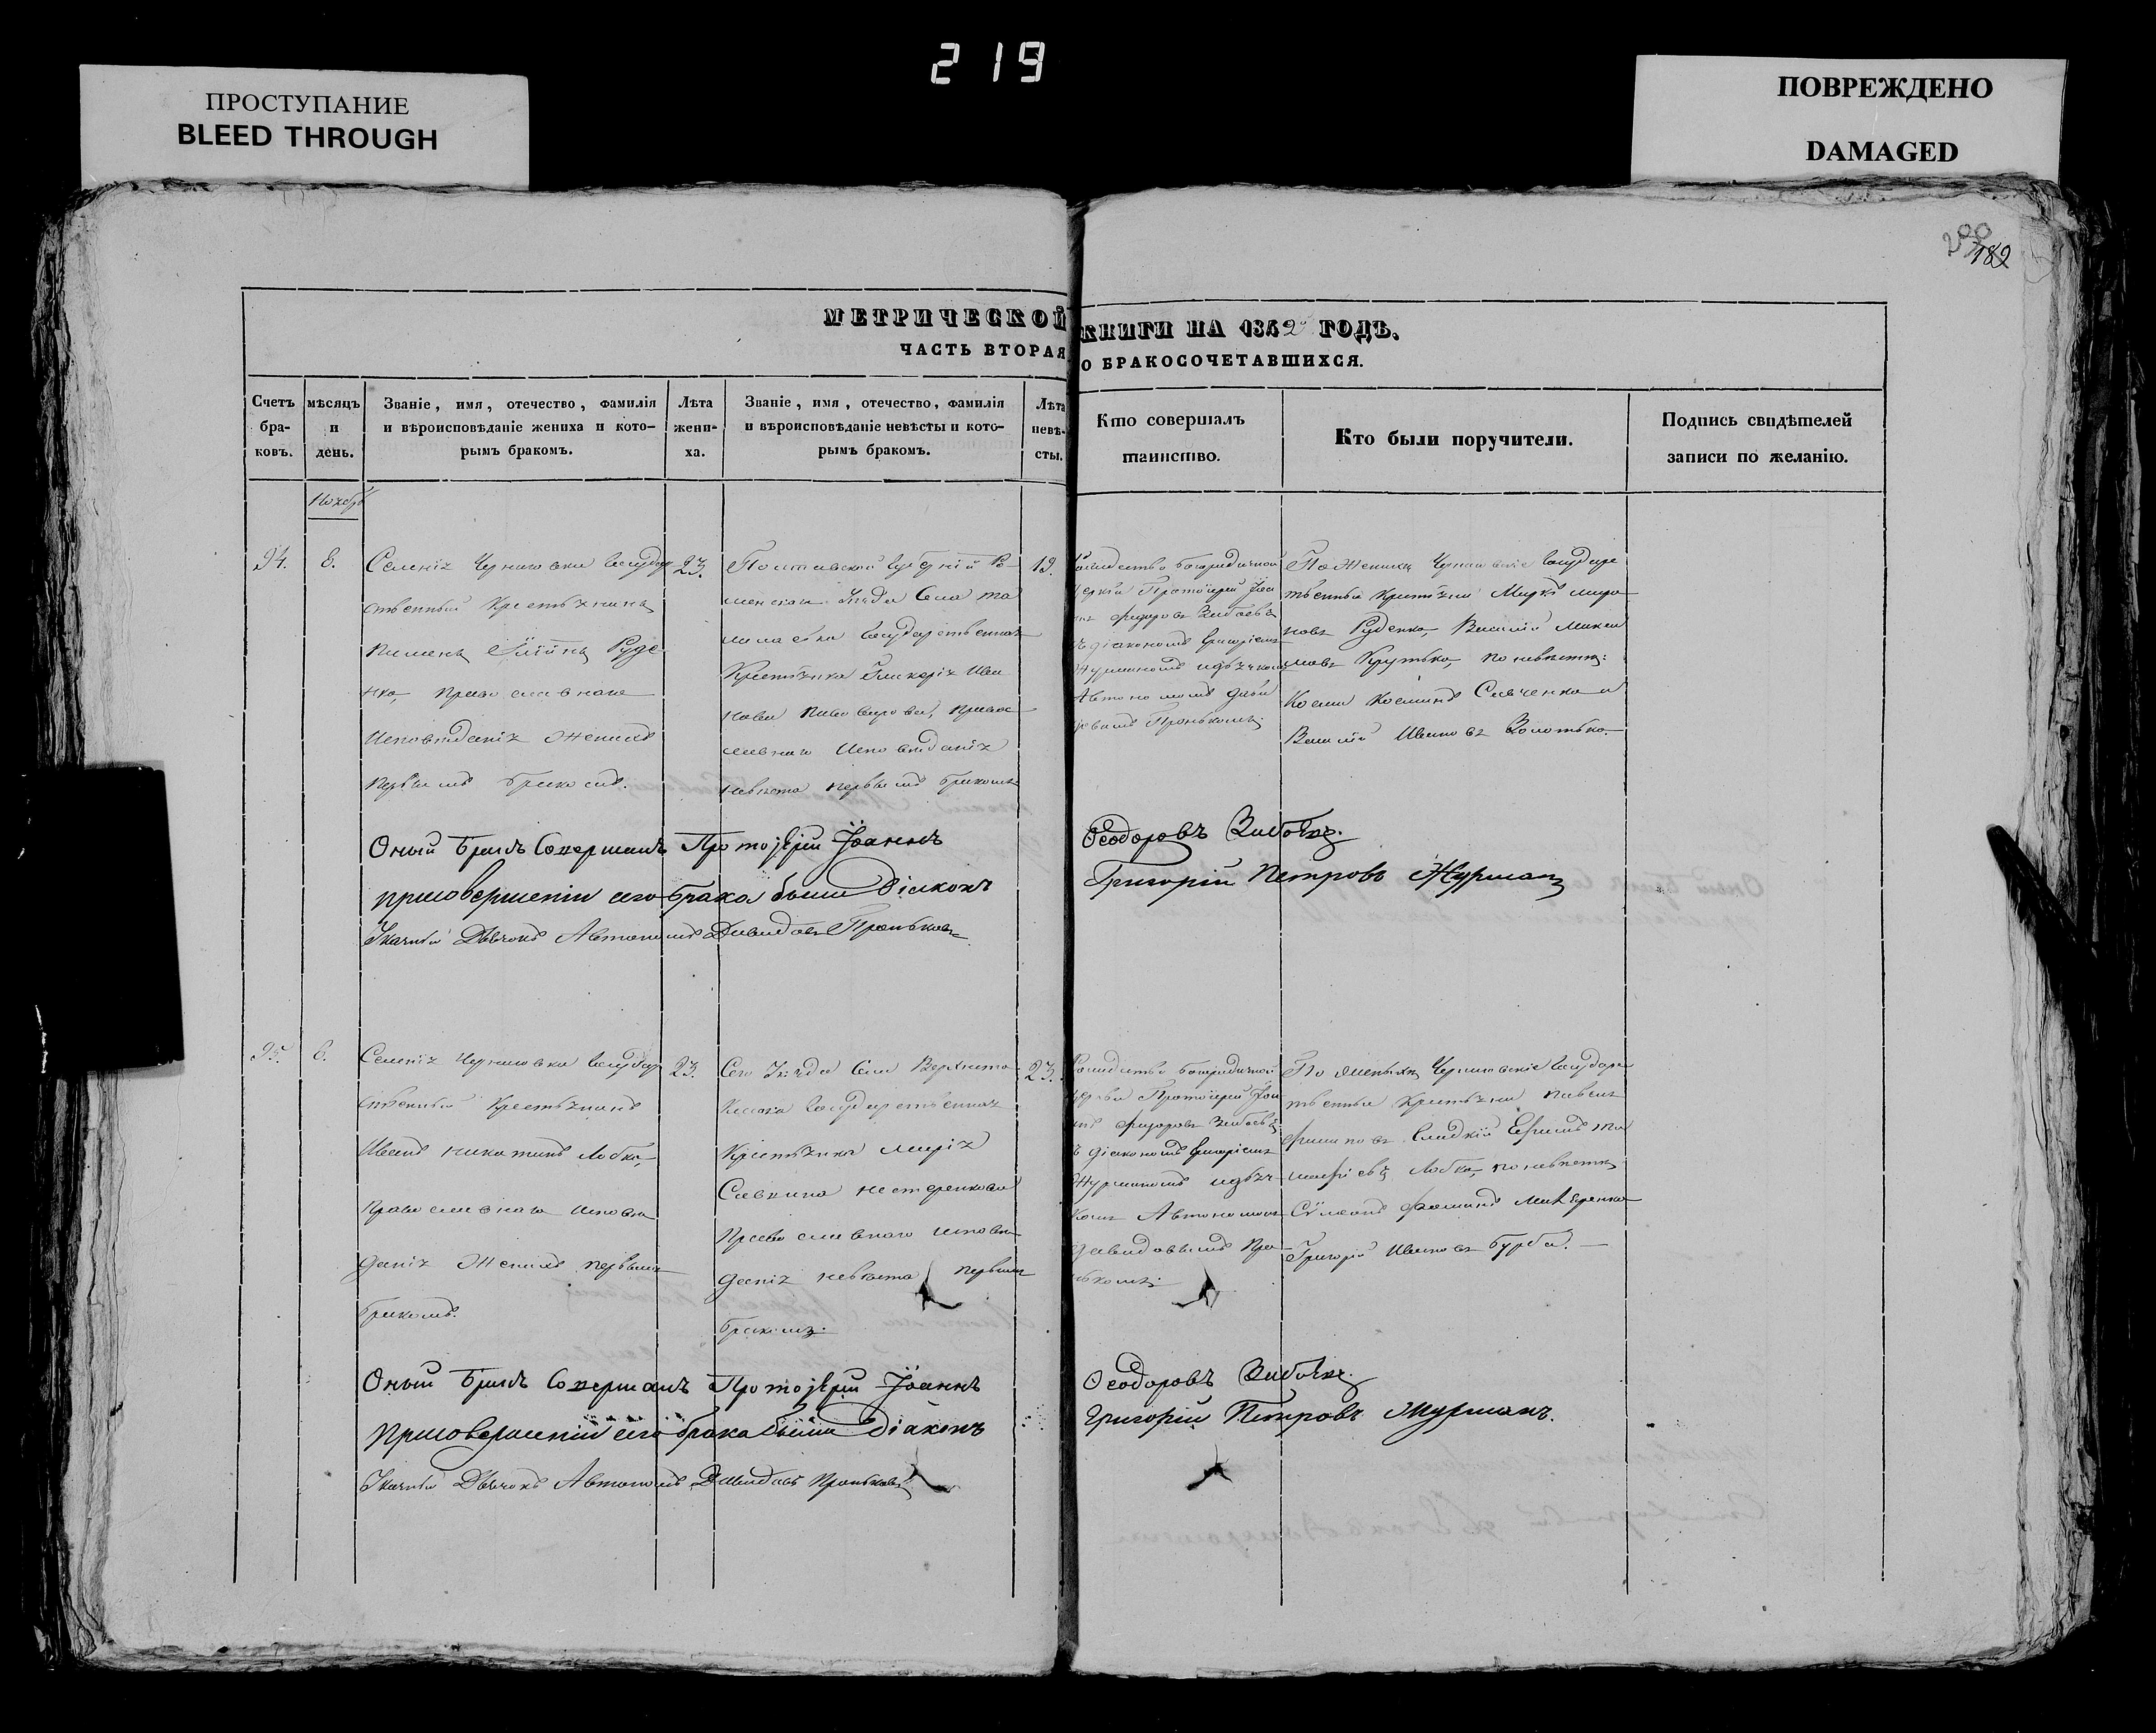 219
ПРОСТУПАНИЕ
BLEED THROUGH
ПОВРЕЖДЕНО
DAMAGED
182
МЕТРИЧЕСКОЙ КНИГИ НА 1842 ГОДЪ.
ЧАСТЬ ВТОРАЯ О БРАКОСОЧЕТАВШИХСЯ.
Счетъ
бра-
ковъ.
мѣсяцъ
и
день.
Званіе, имя, отечество, фамилія
и вѣроисповѣданіе жениха и кото-
рымъ бракомъ.
Лѣта
жени-
ха.
Званіе, имя, отечество, фамилія
и вѣроисповѣданіе невѣсты и кото-
рымъ бракомъ.
Лѣта
невѣ-
сты.
Кто совершалъ
таинство.
Кто были поручители.
Подпись свидѣтелей
записи по желанію.
Ноябрь
94.
8.
Селенія Черниговки Государ
ственный Крестьянинъ
Пименъ Руде
нко, православнаго
Исповѣданія Женихъ
первымъ бракомъ.
23.
Полтавской Губерніи Ро
менскаго Уѣзда Села
Государственная
Крестьянка Гликерія Ива
нова Пивоварова, Право
славнаго Исповѣданія
невѣста первымъ бракомъ
19.
Рождество богородичной
Церкви Протоіерей Іоа
ннъ Федоровъ
съ діакономъ Григоріемъ
Журманомъ и дьячкомъ
Автономомъ Дави
довымъ Пронькомъ
По Женихѣ Черниговскіе Государ
ственные Крестьяне Марко Миро
новъ Руденко, Василій Макси
мовъ Крутько, по невѣстѣ:
Косма Косминъ Савченко и
Василій Ивановъ Золотько.
Оный Бракъ Совершалъ Протоіерей Іоаннъ Ѳеодоровъ
при совершеніи сего брака были Діаконъ Григорій Петровъ Журманъ
Указный Дьячокъ Автономъ Давидовъ Проньковъ
95.
8.
Селенія Черниговки Государ
ственный Крестьянинъ
Иванъ Никитинъ Лобка,
Православнаго Исповѣ
данія Женихъ первымъ
бракомъ.
23.
Сего Уѣзда Села Верхнето
кмака Государственная
Крестьянка Марія
Саввина Нестеренкова
Православнаго исповѣ
данія невѣста первымъ
бракомъ.
23.
Рождество богородичной
Церкви Протоіерей Іоа
ннъ Федоровъ
съ діакономъ Григоріемъ
Журманомъ и дьяч
комъ Автономомъ
Давидовымъ Про
нькомъ
По Женихѣ Черниговскіе Государ
ственные Крестьяне Павелъ
Филиповъ Сладкій Ефимъ Ти
мофіевъ Лобка, по невѣстѣ
Сумеонъ Фоминъ
Григорій Ивановъ Бурба.
Оный Бракъ Совершалъ Протоіерей Іоаннъ Ѳеодоровъ
При совершеніи сего брака были Діаконъ Григорій Петровъ Журманъ.
Указный Дьячокъ Автономъ Давидовъ Проньковъ